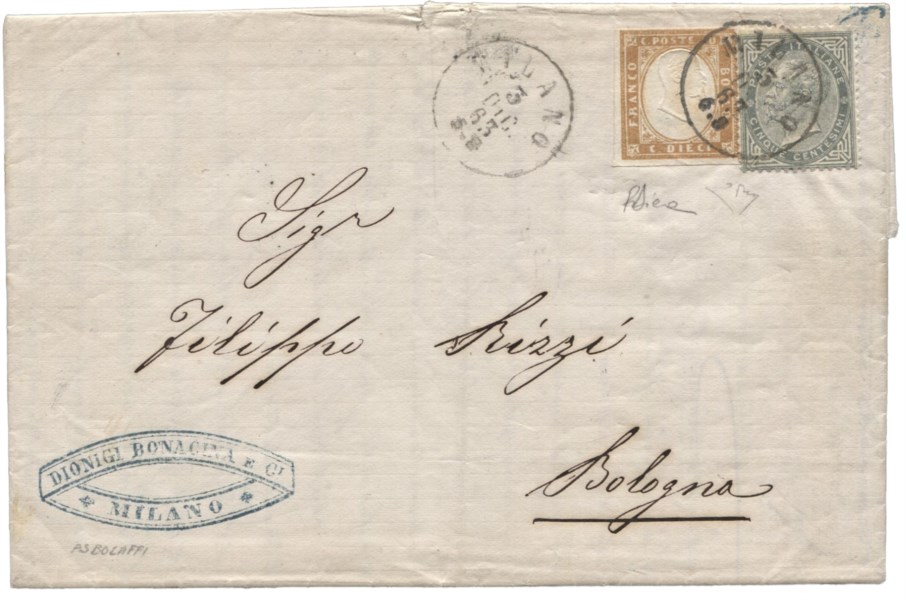 MILANO
3
DIC.
63
5-S
C. POSTE
FRANCO
BO
C. DIECI
POSTE ITALIANE
CINQUE CENTESIMI
MILANO
63
Sigr
Filippo Rizzi
Bologna
DIONIGI BONACINA E CI
MILANO
AS BOLAFFI